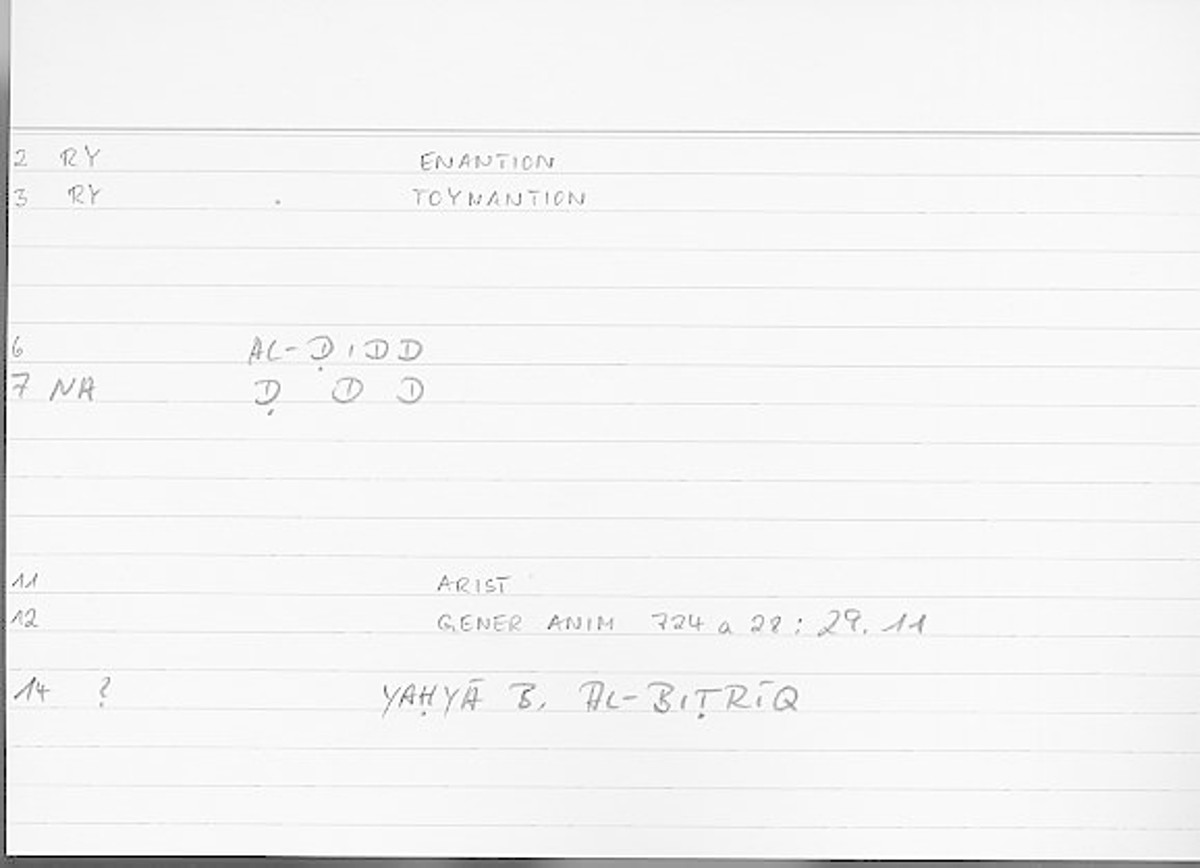 2 RY ENANTION
3 RY TOYNANTION
6 AL-ḌIDD
7 NA Ḍ D D
11 ARIST
12 GENER ANIM 724 a 28 : 29. 11
14 ? YAḤYĀ B. AL-BIṬRĪQ